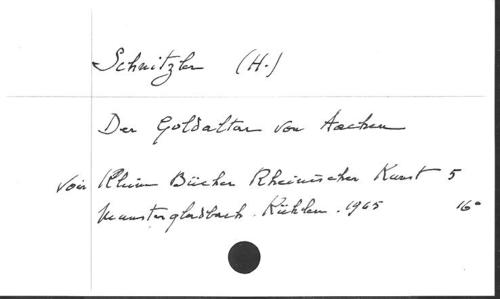 Schnitzler (H.)
Der Goldaltar von Aachen
voir Kleine Bücher Rheinischer Kunst 5
Munstergladbach. Kühlen. 1965 16°